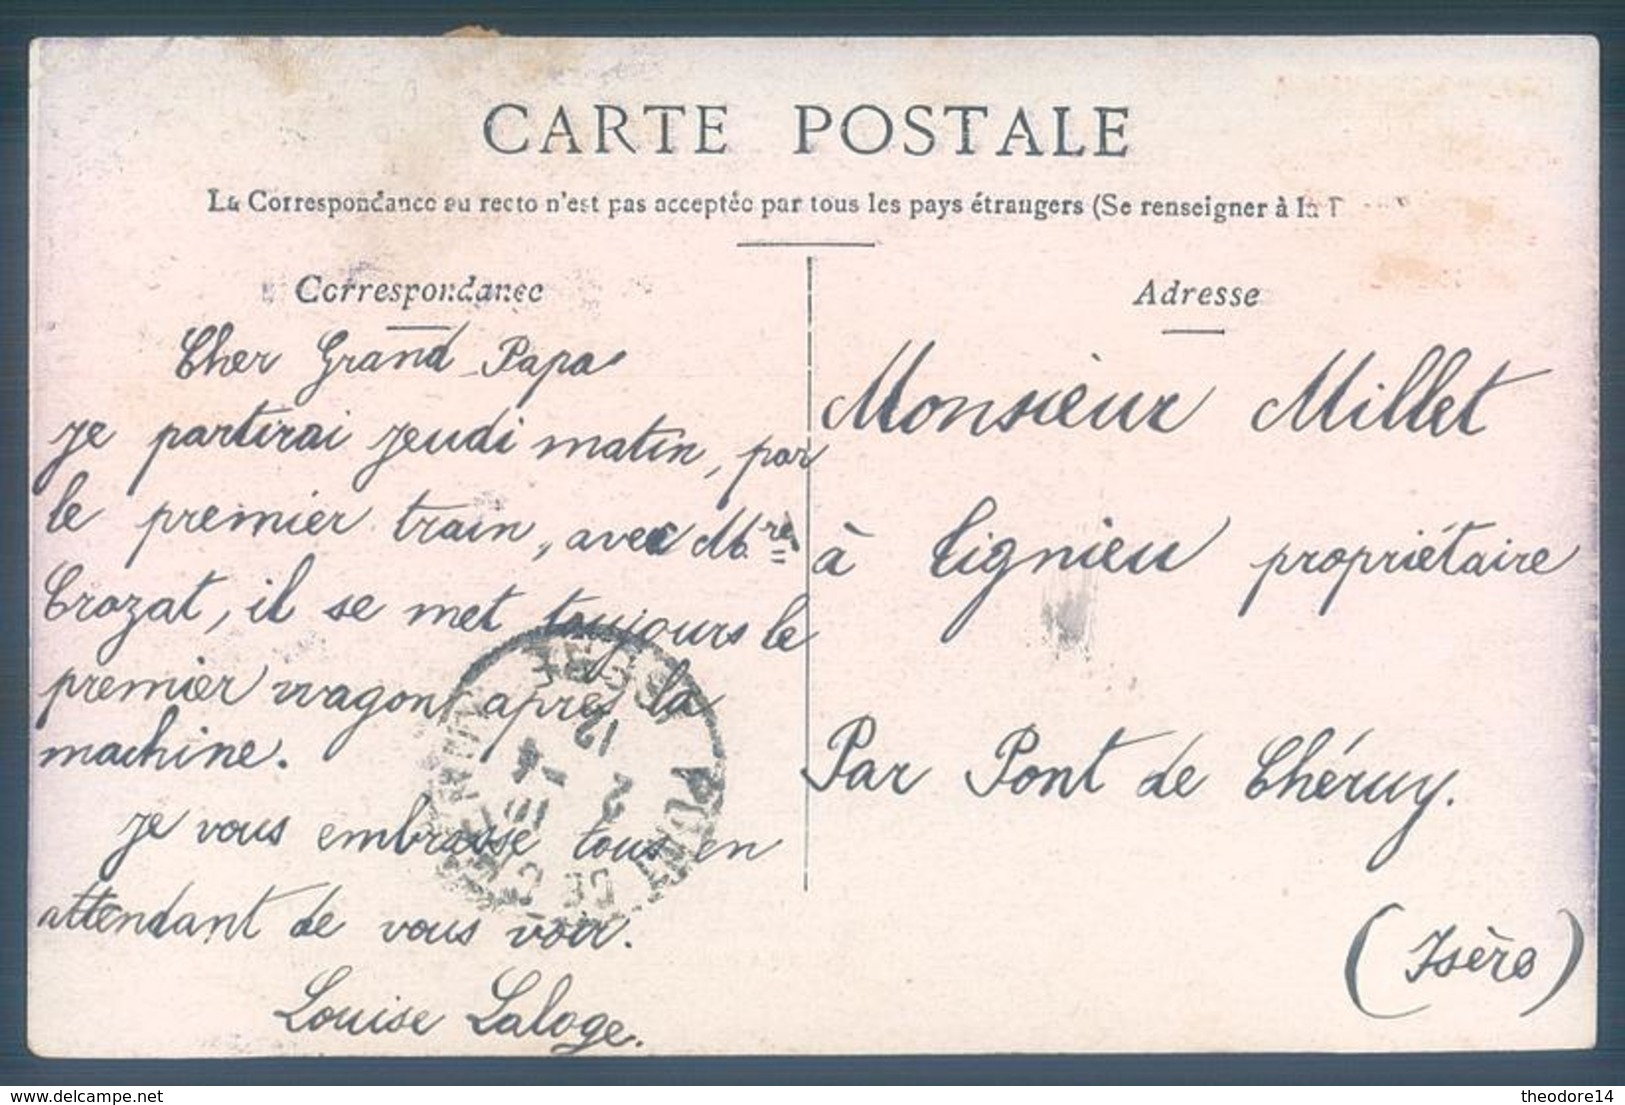 CARTE POSTALE
La Correspondance au recto n'est pas acceptée par tous les pays étrangers (Se renseigner à la
Correspondance
Cher Grand Papa
je partirai jeudi matin, par
le premier train, avec Mre
Crozat, il se met toujours le
premier wagon après la
machine.
je vous embrasse tous en
attendant de vous voir.
Louise Laloge.
Adresse
Monsieur Millet
à Tignieu propriétaire
Par Pont de Chéruy.
(Isère)
PONT DE
ISÈRE
12
2 - 4
10
delcampe.net
theodore14